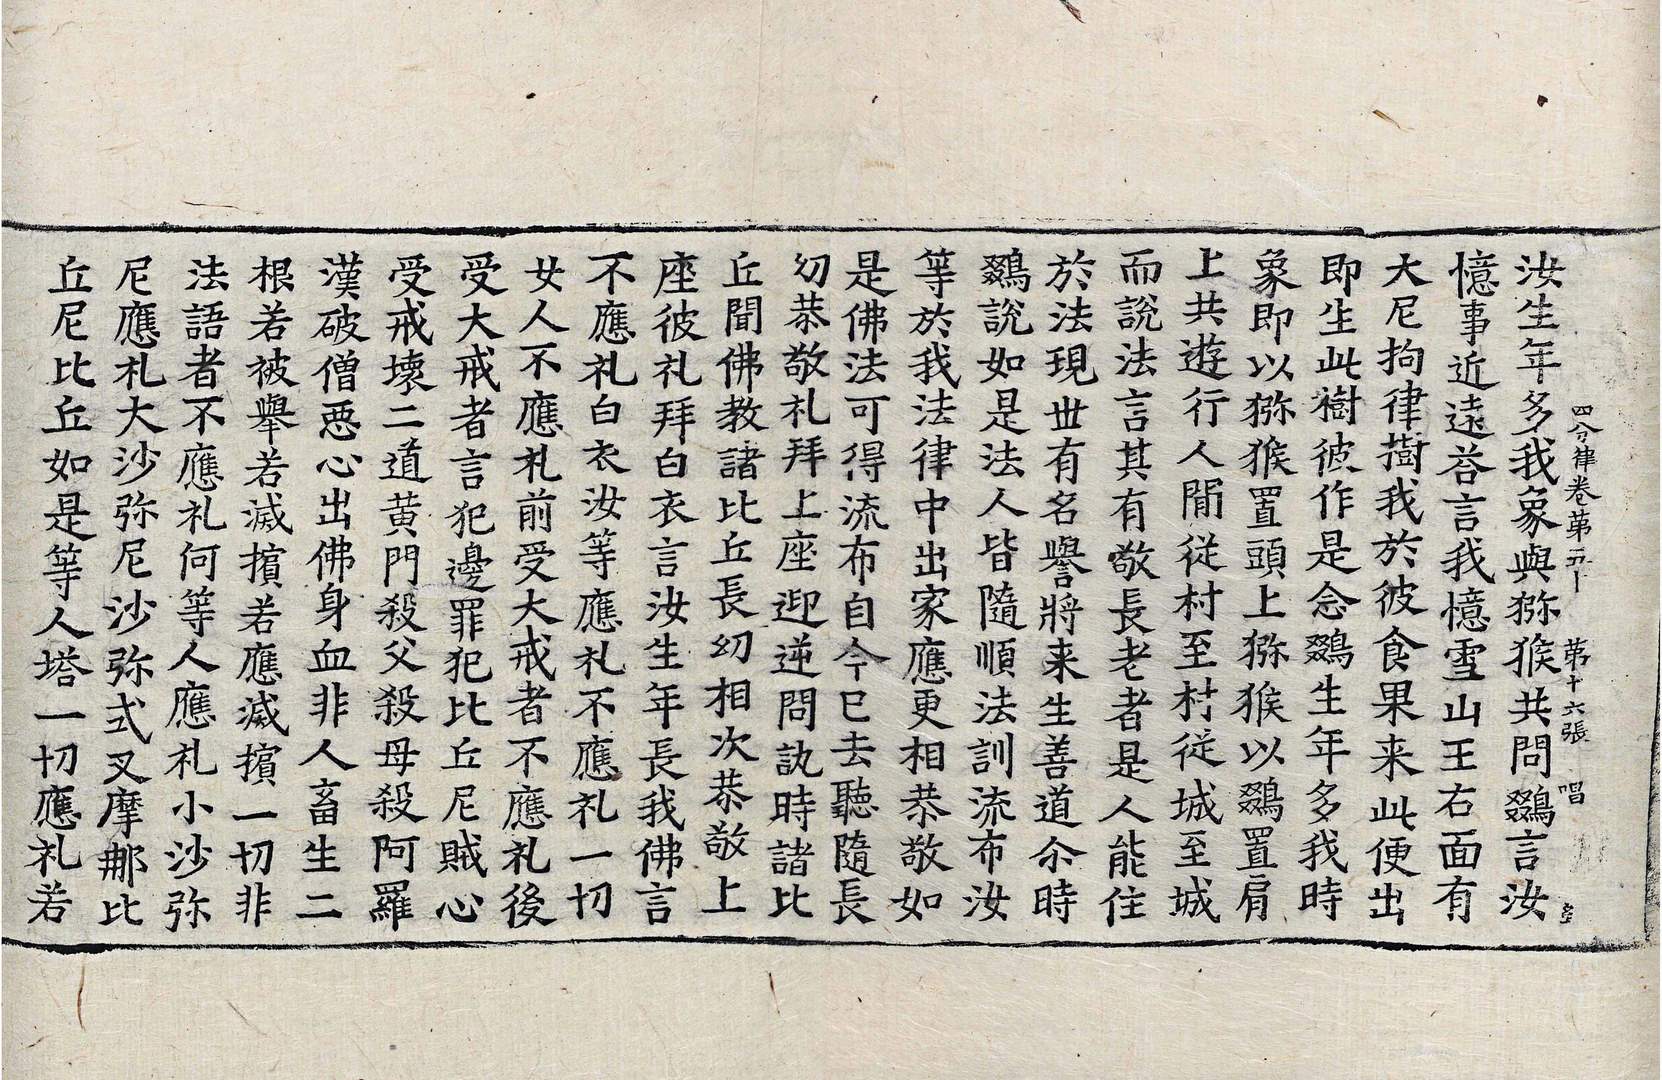 四分律卷第五十　第十六張　唱
汝生年多我象與猕猴共問鵽言汝
憶事近遠荅言我憶雪山王右面有
大尼拘律樹我於彼食果来此便出
即生此樹彼作是念鵽生年多我時
象即以猕猴置頭上猕猴以鵽置肩
上共遊行人間従村至村従城至城
而說法言其有敬長老者是人能住
於法現世有名譽將来生善道尒時
鵽說如是法人皆隨順法訓流布汝
等於我法律中出家應更相恭敬如
是佛法可得流布自今已去聽隨長
幼恭敬礼拜上座迎逆問訊時諸比
丘聞佛教諸比丘長幼相次恭敬上
座彼礼拜白衣言汝生年長我佛言
不應礼白衣汝等應礼不應礼一切
女人不應礼前受大戒者不應礼後
受大戒者言犯邊罪犯比丘尼賊心
受戒壞二道黄門殺父殺母殺阿羅
漢破僧惡心出佛身血非人畜生二
根若被舉若滅擯若應滅擯一切非
法語者不應礼何等人應礼小沙弥
尼應礼大沙弥尼沙弥式叉摩那比
丘尼比丘如是等人塔一切應礼若